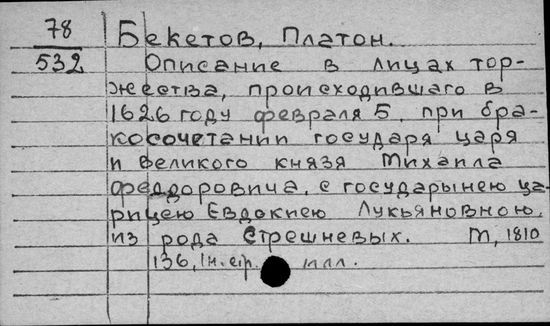 78 Бекетов, Платон.
532 Описание в лицах тор-
жества, происходившаго в
1626 году февраля 5, при бра-
косочетании государя царя
и великого князя Михаила
Феодоровича, с государынею ца-
рицею Евдокиею Лукьяновною,
из рода Стрешневых. М, 1810
136, 1н.стр. илл.